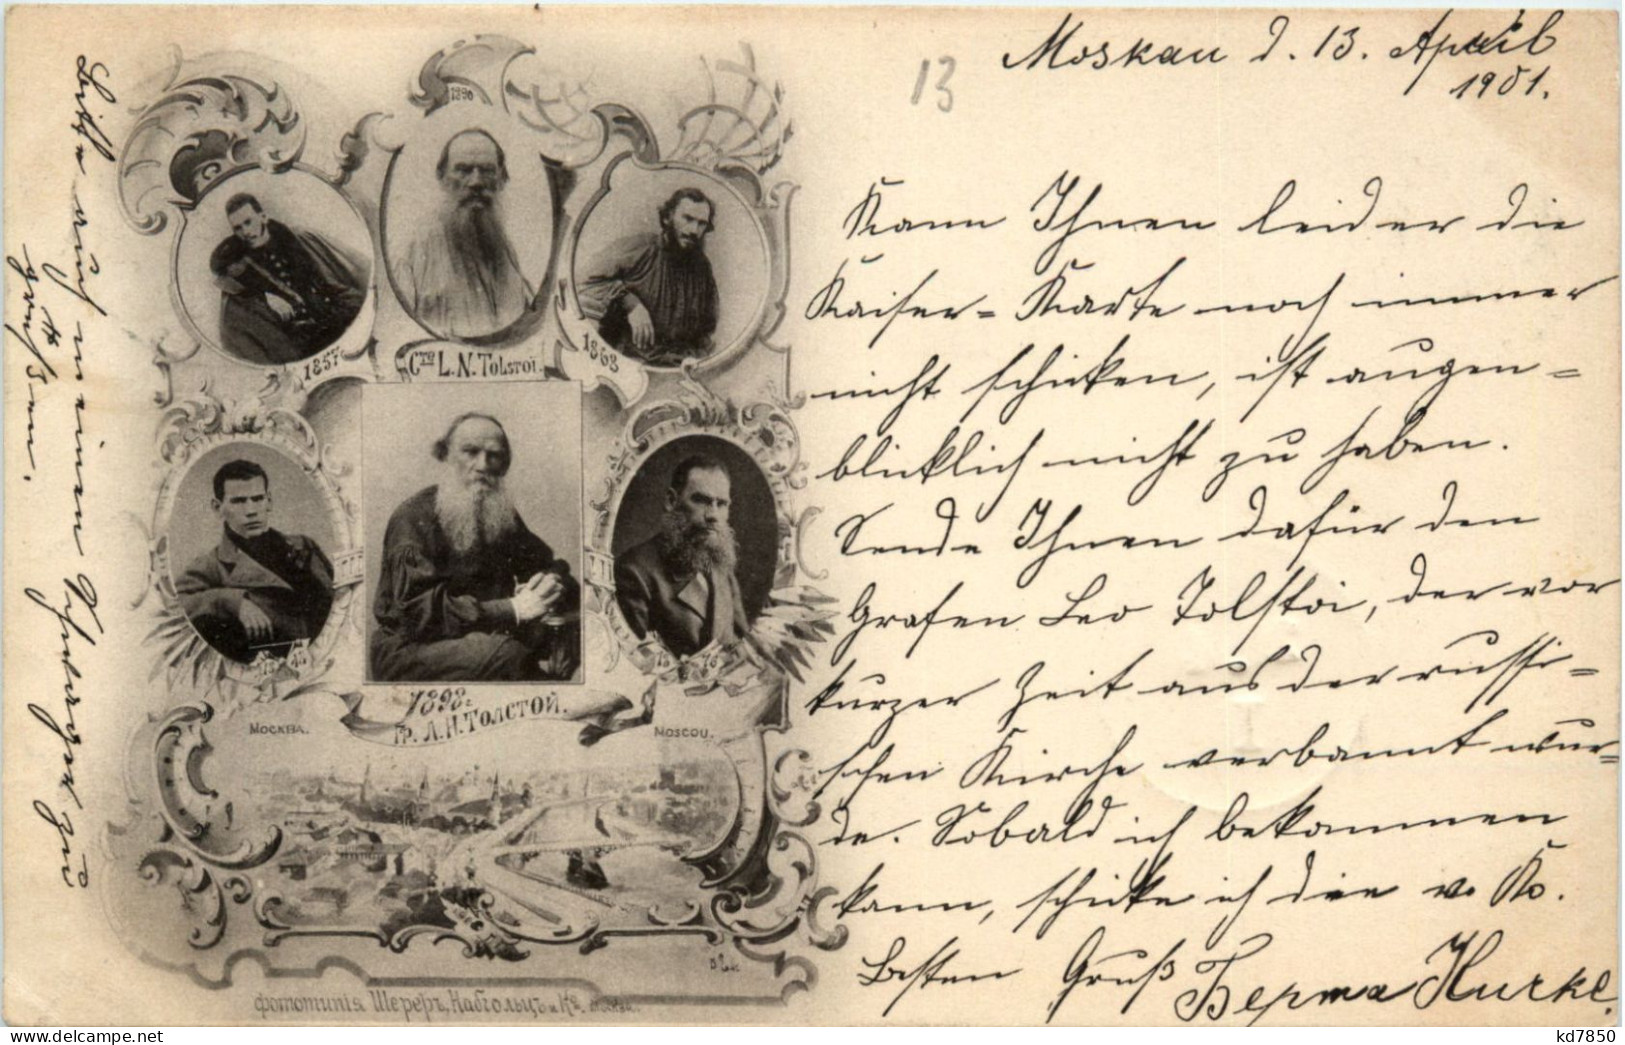 Moskau d. 13. April
1901.
13
Kann Ihnen leider die
Kaiser-Karte noch immer
nicht schicken, ist augen-
blicklich nicht zu haben.
Sende Ihnen dafür den
Grafen Leo Tolstoi, der vor
kurzer Zeit aus der russi-
schen Kirche verbannt wur-
de. Sobald ich bekommen
kann, schicke ich die v. K.
Besten Gruß
Bitte auch meinen zu
grüßen.
1890
1857
Cte L. N. Tolstoï.
1868
1898 г.
Гр. Л. Н. Толстой.
1876
Москва.
Moscou.
фототипія Шереръ, Набгольцъ и Ко. Москва.
kd7850